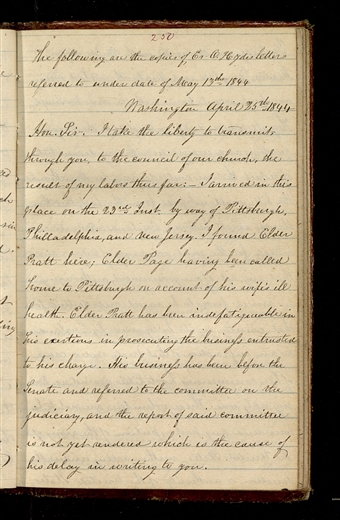 250
The following are the copies of Er O Hydes letters
referred to under date of May 13th 1844
Washington April 25th 1844
Hon. Sir. I take the liberty to transmit
through you, to the council of our church, the
result of my labors thus far:— I arrived in this
place on the 23rd Inst. by way of Pittsburgh,
Philladelphia, and New Jersey. I found Elder
Pratt here; Elder Page having been called
home to Pittsburgh on account of his wife's ill
health. Elder Pratt has been indefatigable in
his exertions in prosecuting the business entrusted
to his charge. His business has been before the
Senate and referred to the committee on the
judiciary, and the report of said committee
is not yet rendered which is the cause of
his delay in writing to you.